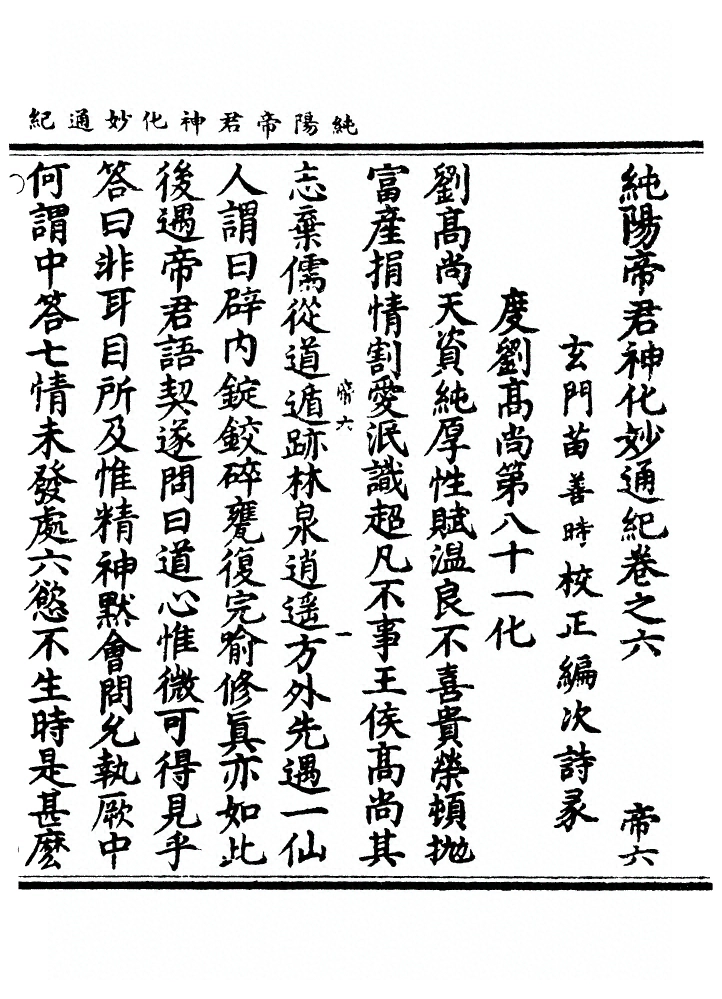 純陽帝君神化妙通紀
純陽帝君神化妙通紀卷之六　帝六
玄門苗善時校正編次詩彖
度劉高尚第八十一化
劉高尚天資純厚性賦溫良不喜貴榮頓拋
富產捐情割愛泯識超凡不事王侯高尚其
志棄儒從道遁跡林泉逍遥方外先遇一仙
人謂曰辟內錠鉸碎甕復完喻修真亦如此
後遇帝君語契遂問曰道心惟微可得見乎
答曰非耳目所及惟精神默會問允執厥中
何謂中答七情未發處六慾不生時是甚麽
六
一